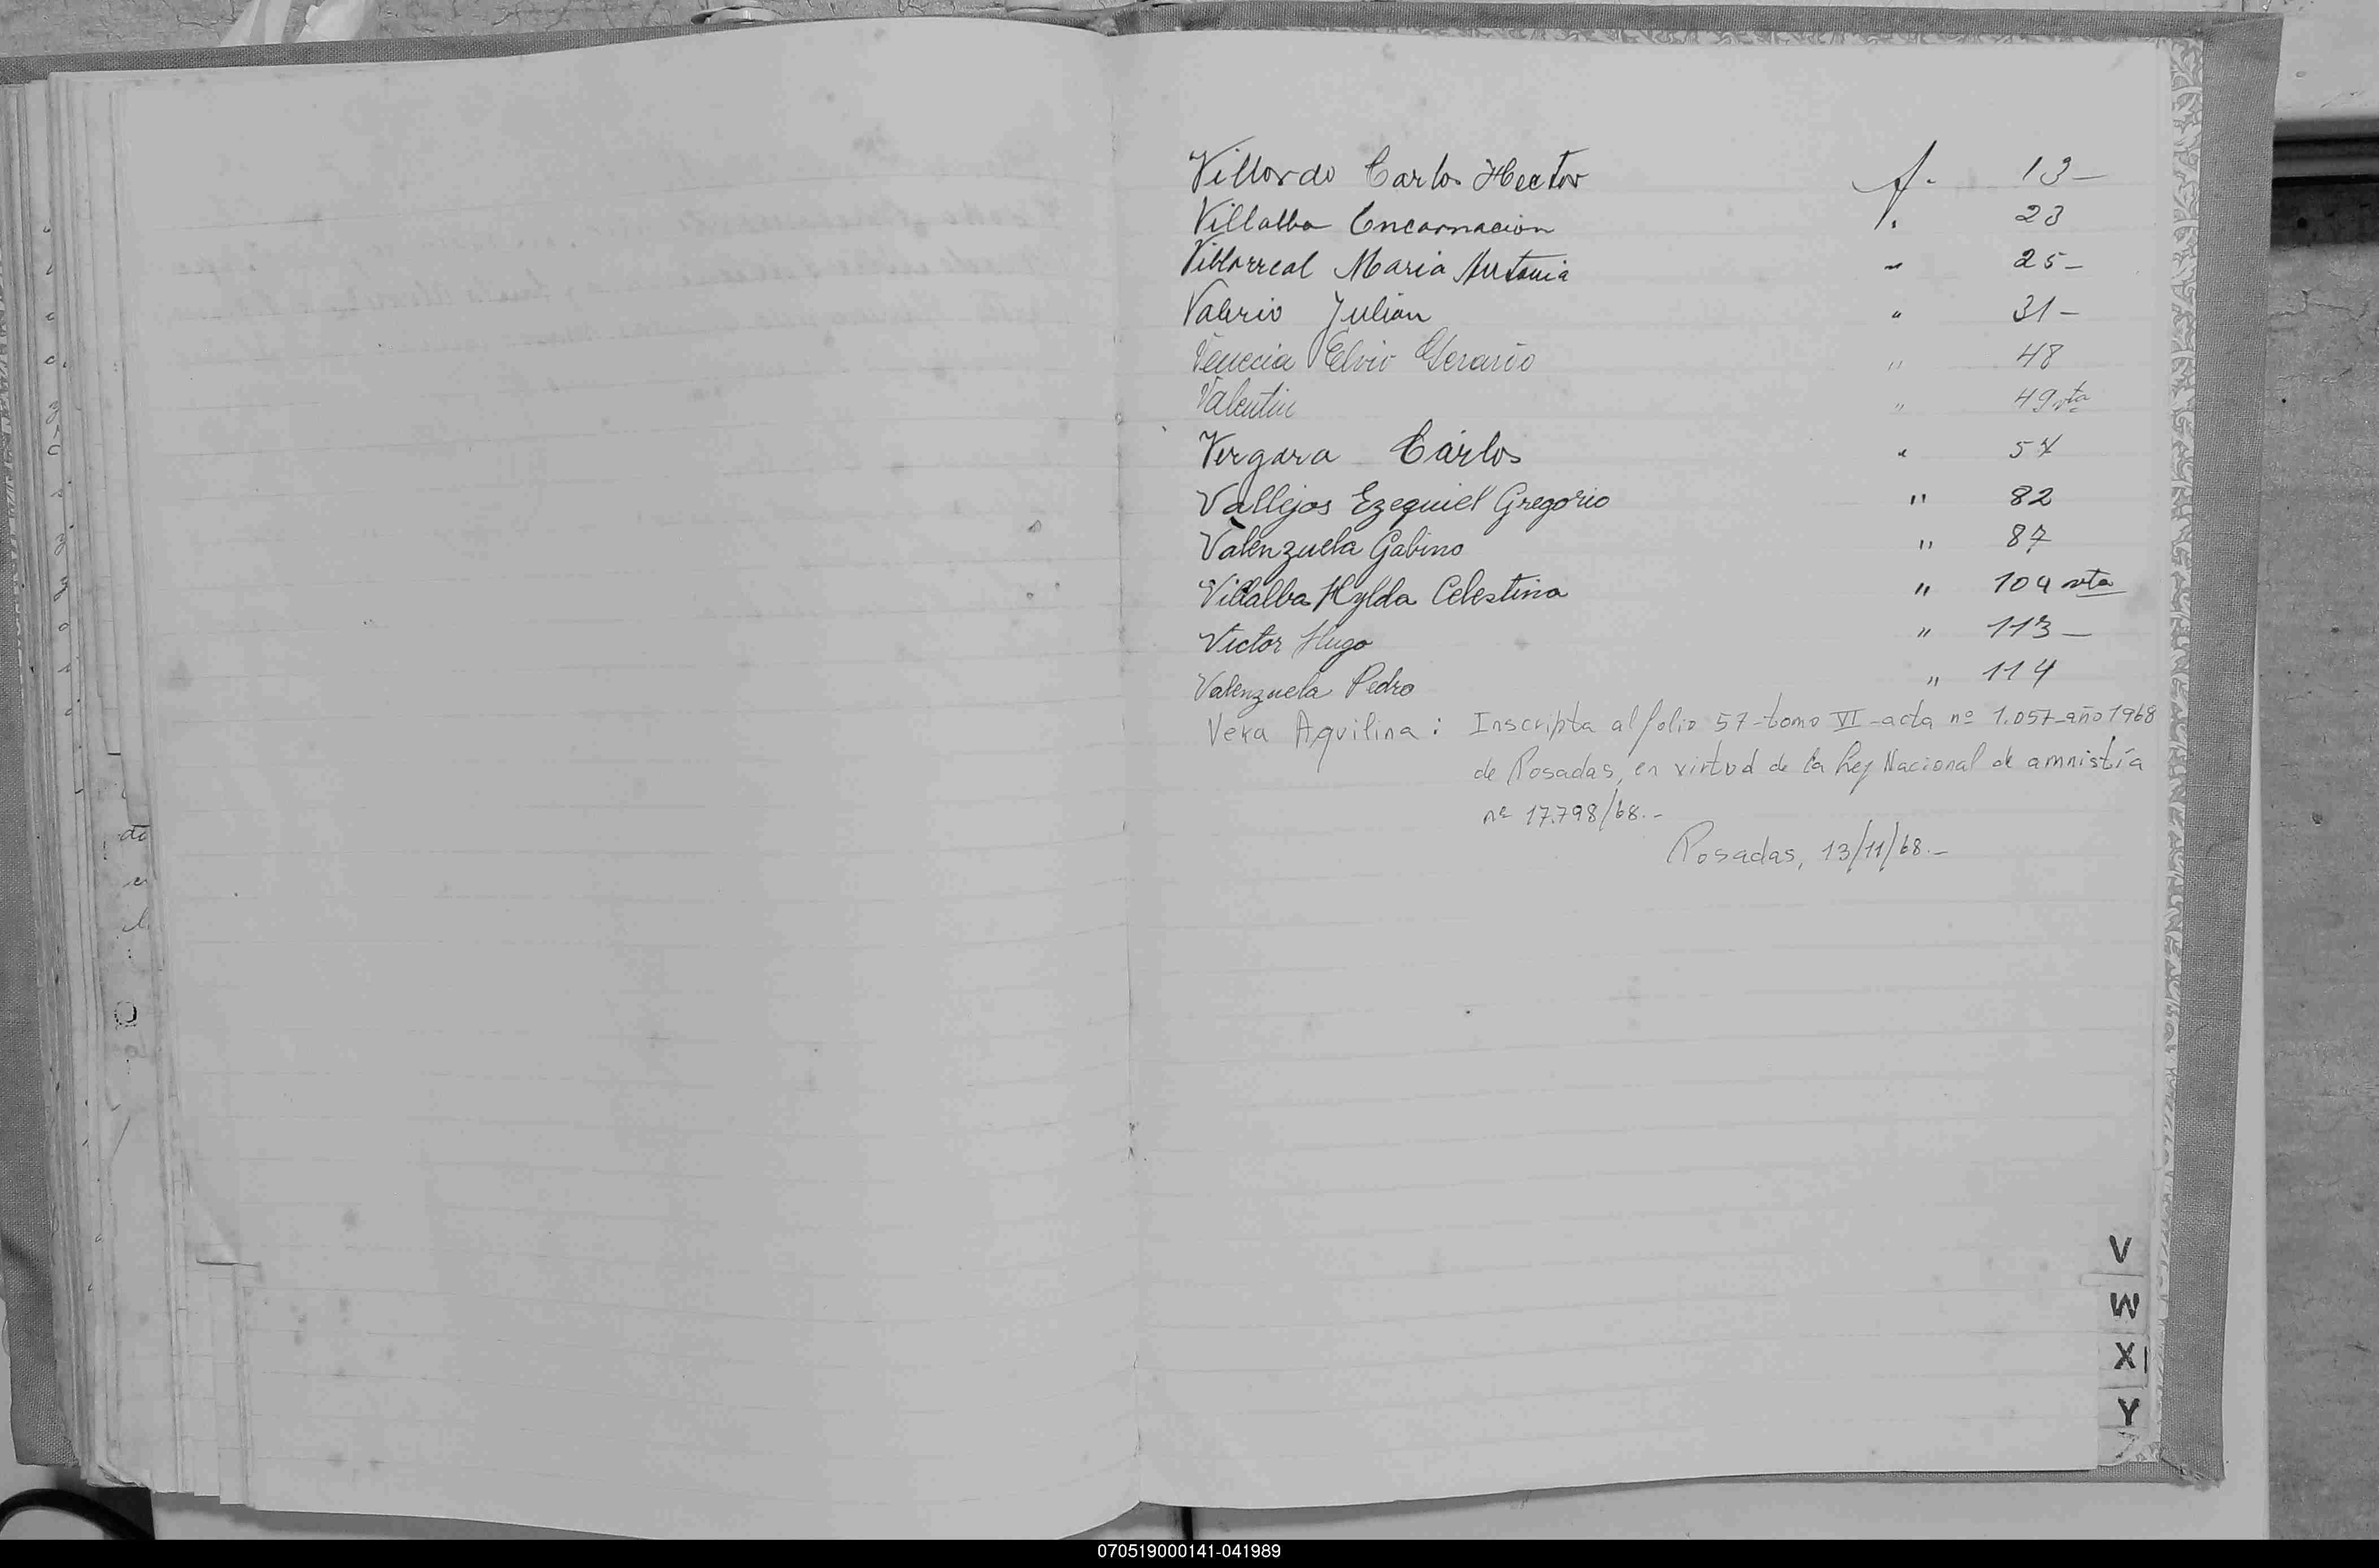 Villordo Carlos Hector f. 13-
Villalba Encarnación " 23
Villarreal Maria Antonia " 25-
Valerio Julian " 31-
Venecia Elvio Gerario " 48
Valentin " 49 vta
Vergara Carlos " 57
Vallejos Ezequiel Gregorio " 82
Valenzuela Gabino " 87
Villalba Hylda Celestina " 109 vta
Victor Hugo " 113-
Valenzuela Pedro " 114
Vera Aquilina: Inscripta al folio 57-tomo VI-acta nº 1.057-año 1968
de Posadas, en virtud de la Ley Nacional de amnistía
nº 17.798/68.-
Posadas, 13/11/68.-
V
W
X
Y
070519000141-041989